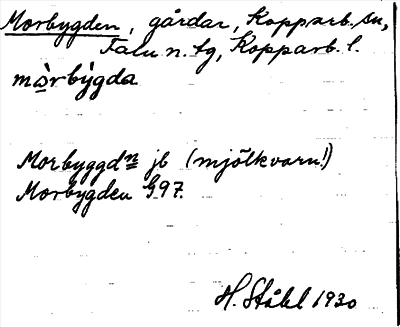 Morbygden, gårdar, Kopparb. sn,
Falu n. tg, Kopparb. l.
mòrbỳgda
Morbyggdn jb (mjölkvarn!)
Morbygden G97.
H. Ståhl 1930